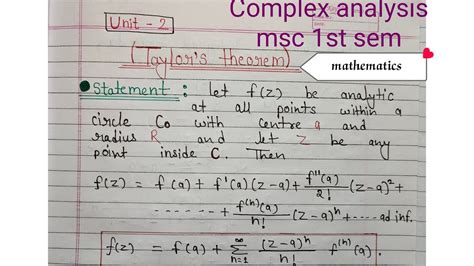 Complex analysis
msc 1st sem
mathematics
Unit - 2
(Taylor's theorem)
Statement : let f(z) be analytic
at all points within a
circle Co with centre a and
radius R and let z be any
point inside C. Then
f(z) = f(a) + f'(a)(z-a) + f''(a)/2! (z-a)² +
------ + f⁽ⁿ⁾(a)/n! (z-a)ⁿ + ---- ad inf.
f(z) = f(a) + ∞Σn=1 (z-a)ⁿ/n! f⁽ⁿ⁾(a).